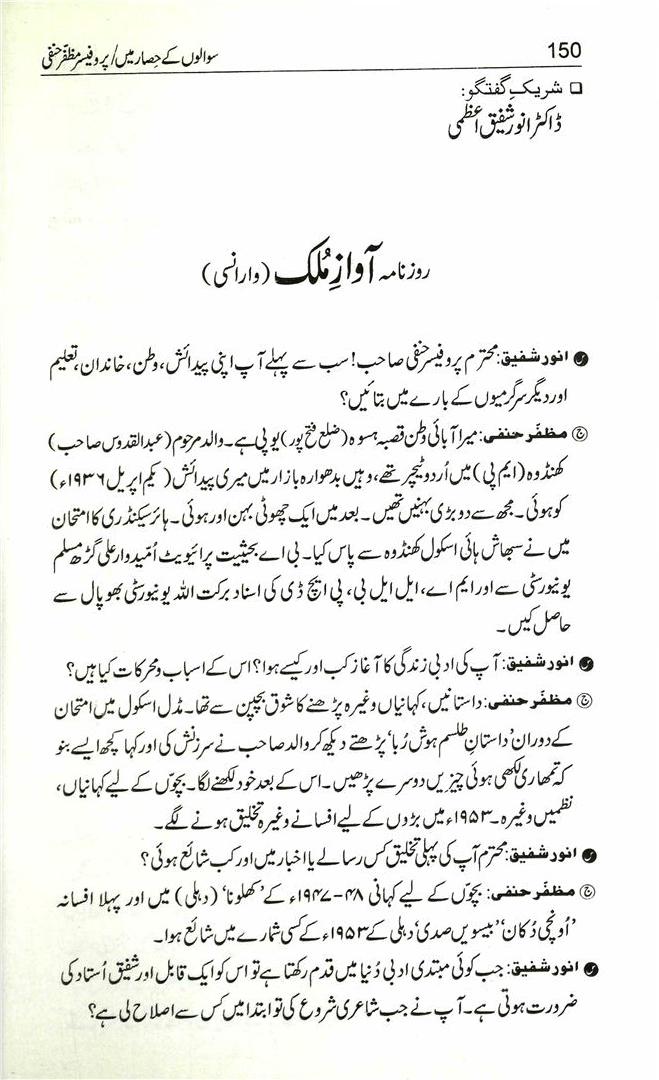 150
سوالوں کے حصار میں/ پروفیسر مظفّر حنفی
❑ شریکِ گفتگو:
ڈاکٹر انور شفیق اعظمی
روزنامہ آوازِ مُلک (وارانسی)
انور شفیق: محترم پروفیسر حنفی صاحب! سب سے پہلے آپ اپنی پیدائش، وطن، خاندان، تعلیم
اور دیگر سرگرمیوں کے بارے میں بتائیں؟
ج مظفّر حنفی: میرا آبائی وطن قصبہ ہسوہ (ضلع فتح پور) یوپی ہے۔ والد مرحوم (عبدالقدوس صاحب)
کھنڈوہ (ایم پی) میں اُردو ٹیچر تھے، وہیں بدھوارہ بازار میں میری پیدائش (یکم اپریل ۱۹۳۶ء)
کو ہوئی۔ مجھ سے دو بڑی بہنیں تھیں۔ بعد میں ایک چھوٹی بہن اور ہوئی۔ ہائر سیکنڈری کا امتحان
میں نے سبھاش ہائی اسکول کھنڈوہ سے پاس کیا۔ بی اے بحیثیت پرائیویٹ اُمیدوار علی گڑھ مسلم
یونیورسٹی سے اور ایم اے، ایل ایل بی، پی ایچ ڈی کی اسناد برکت اللہ یونیورسٹی بھوپال سے
حاصل کیں۔
انور شفیق: آپ کی ادبی زندگی کا آغاز کب اور کیسے ہوا؟ اس کے اسباب و محرکات کیا ہیں؟
ج مظفّر حنفی: داستانیں، کہانیاں وغیرہ پڑھنے کا شوق بچپن سے تھا۔ مڈل اسکول میں امتحان
کے دوران ’داستانِ طلسم ہوش رُبا‘ پڑھتے دیکھ کر والد صاحب نے سرزنش کی اور کہا کچھ ایسے بنو
کہ تمھاری لکھی ہوئی چیزیں دوسرے پڑھیں۔ اس کے بعد خود لکھنے لگا۔ بچّوں کے لیے کہانیاں،
نظمیں وغیرہ۔ ۱۹۵۳ء میں بڑوں کے لیے افسانے وغیرہ تخلیق ہونے لگے۔
انور شفیق: محترم آپ کی پہلی تخلیق کس رسالے یا اخبار میں اور کب شائع ہوئی؟
ج مظفّر حنفی: بچّوں کے لیے کہانی ۴۸-۱۹۴۷ء کے ’کھلونا‘ (دہلی) میں اور پہلا افسانہ
’اُونچی دُکان‘ ’بیسویں صدی‘ دہلی کے ۱۹۵۳ء کے کسی شمارے میں شائع ہوا۔
انور شفیق: جب کوئی مبتدی ادبی دُنیا میں قدم رکھتا ہے تو اس کو ایک قابل اور شفیق اُستاد کی
ضرورت ہوتی ہے۔ آپ نے جب شاعری شروع کی تو ابتدا میں کس سے اصلاح لی ہے؟